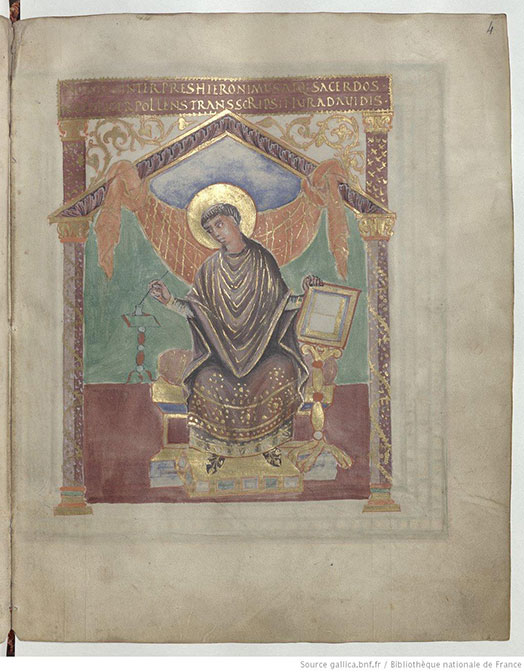 4
INTERPRES HIERONIMUS ATQ SACERDOS
POLLENS TRANSSCRIPSIT IURA DAVIDIS
Source gallica.bnf.fr / Bibliothèque nationale de France